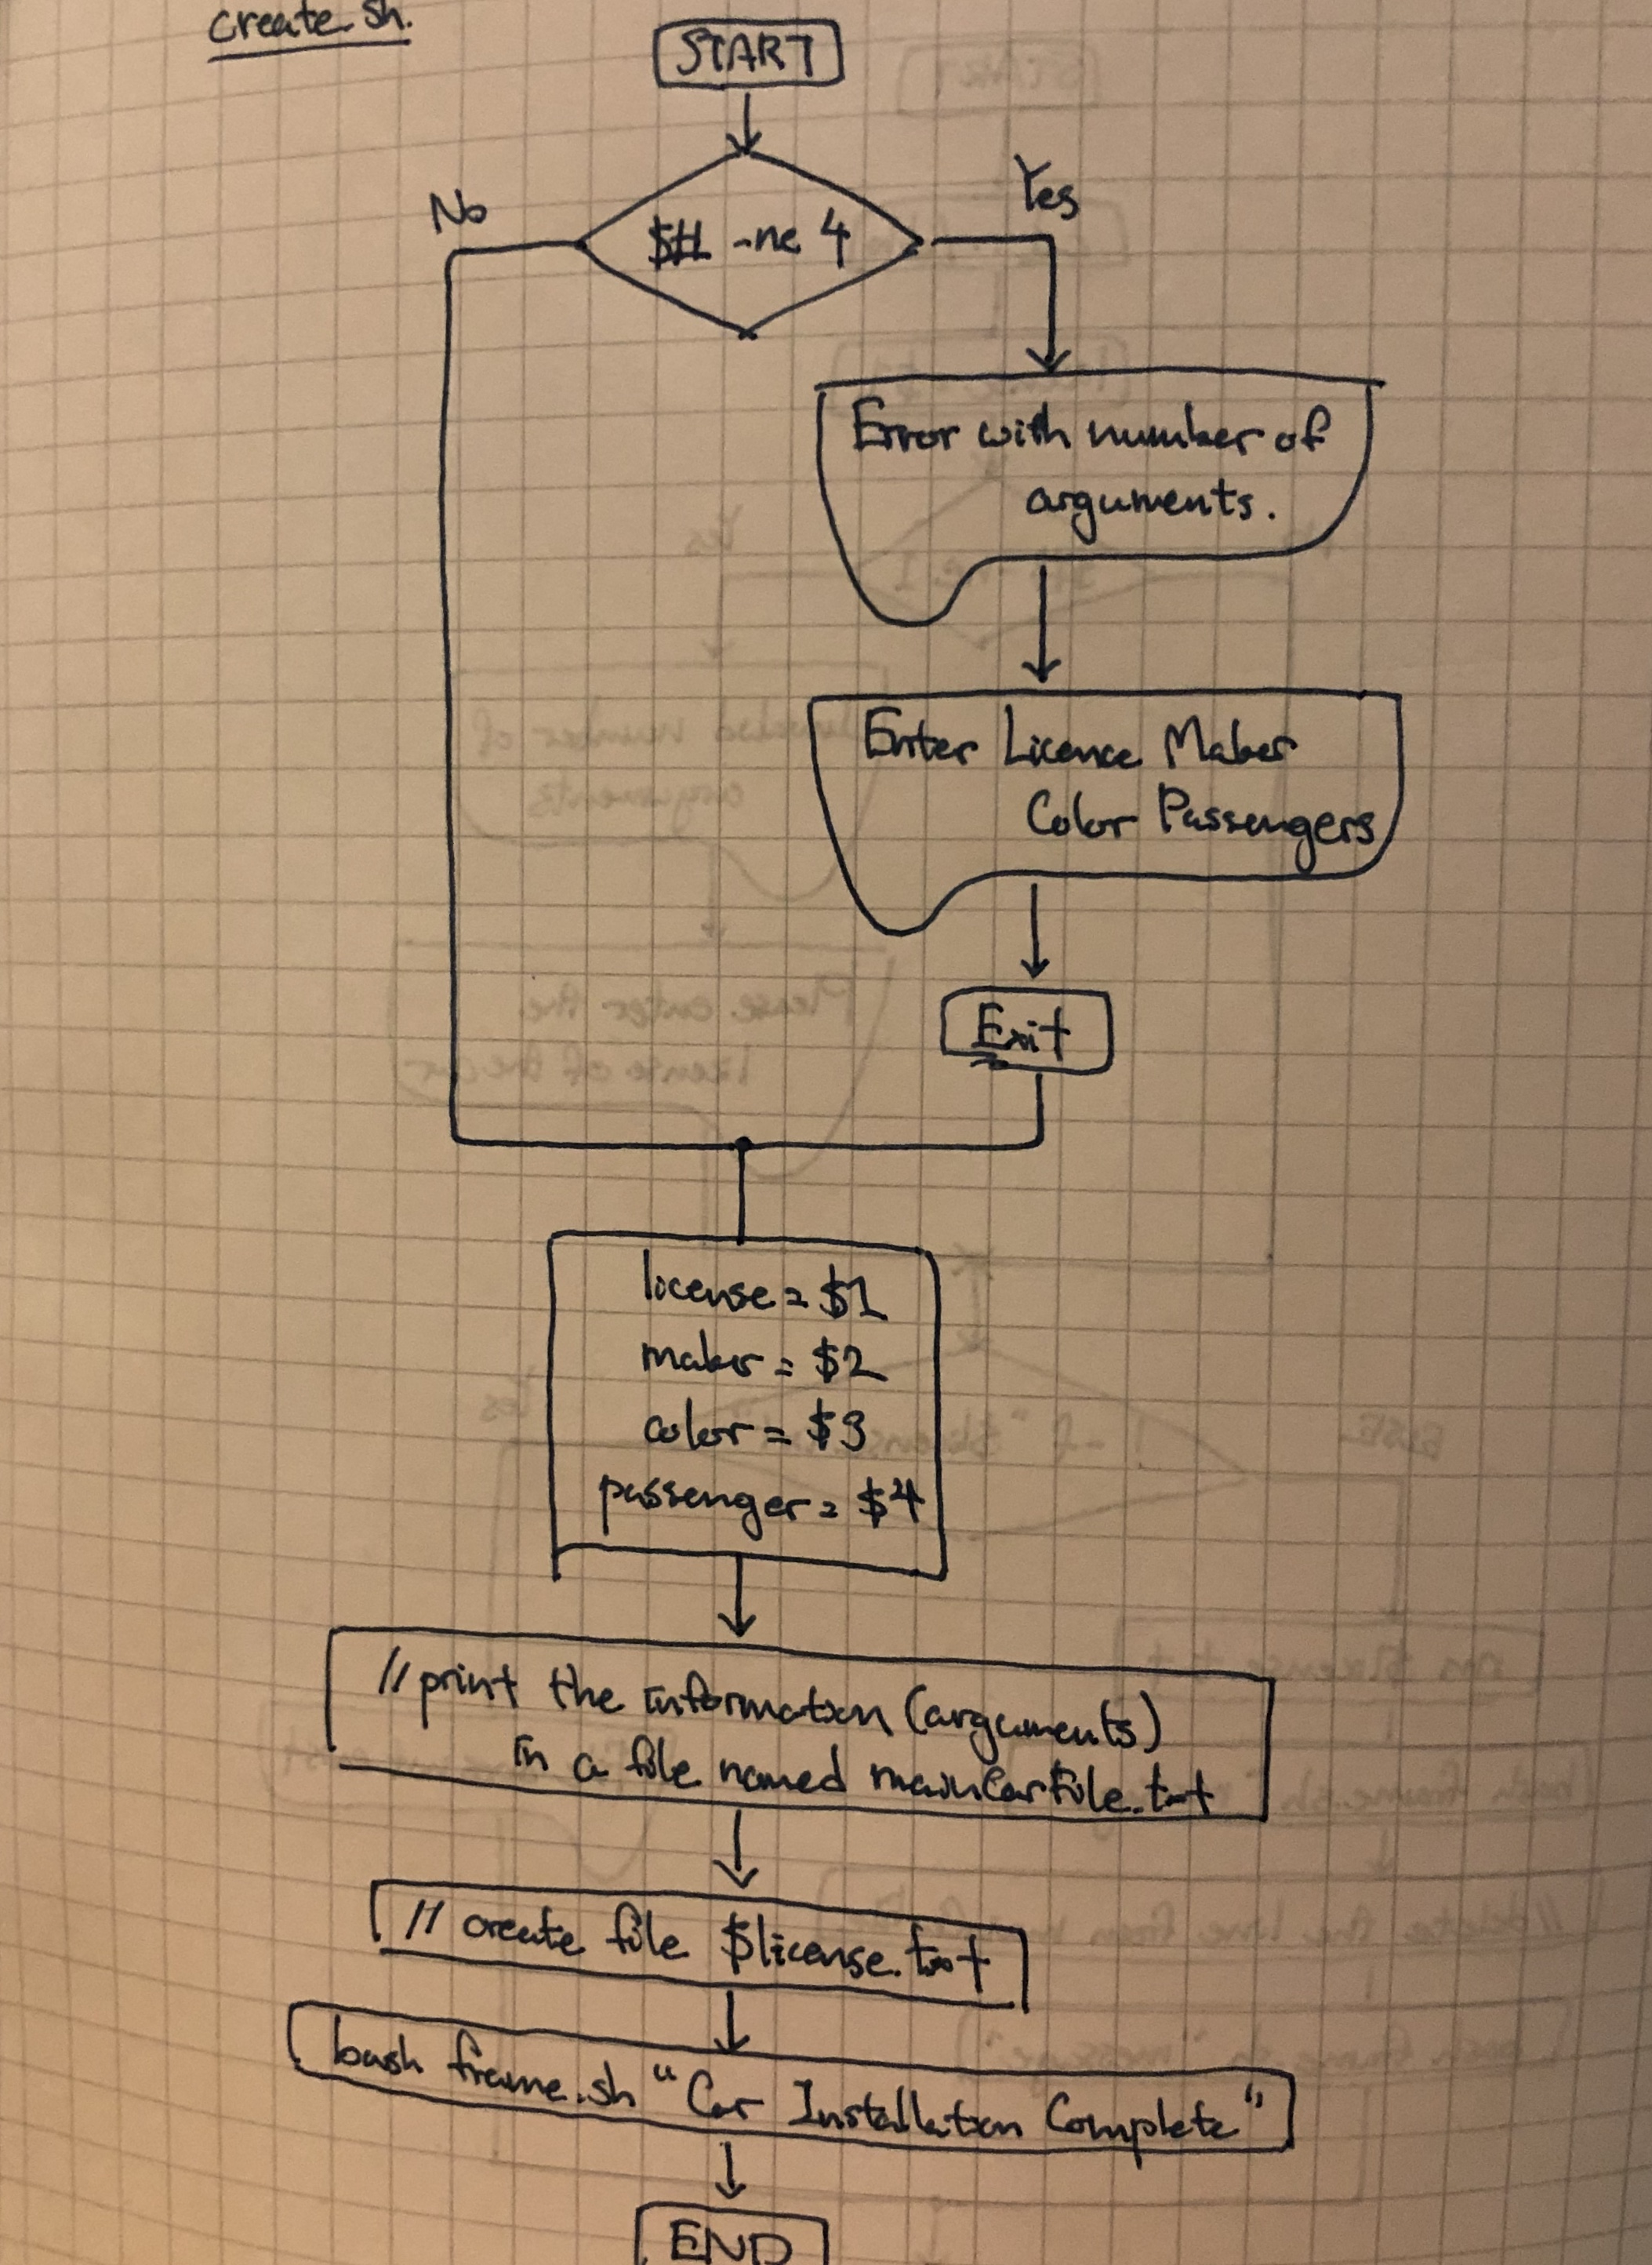 create.sh.
START
No
Yes
$# -ne 4
Error with number of
arguments.
Enter Licence Maker
Color Passengers
Exit
license = $1
maker = $2
color = $3
passenger = $4
// print the information (arguments)
in a file named mainCarFile.txt
// create file $license.txt
bash frame.sh "Car Installation Complete"
END